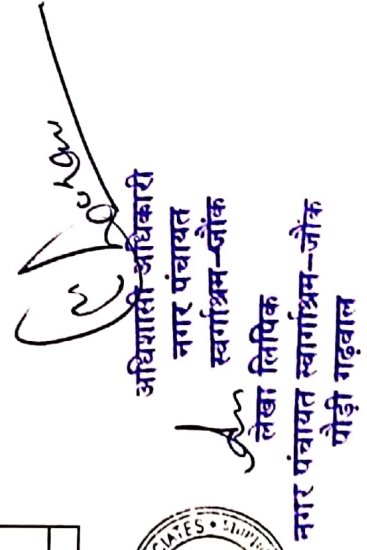 अधिशासी अधिकारी
नगर पंचायत
स्वर्गाश्रम-जौंक
लेखा लिपिक
नगर पंचायत स्वर्गाश्रम-जौंक
पौड़ी गढ़वाल